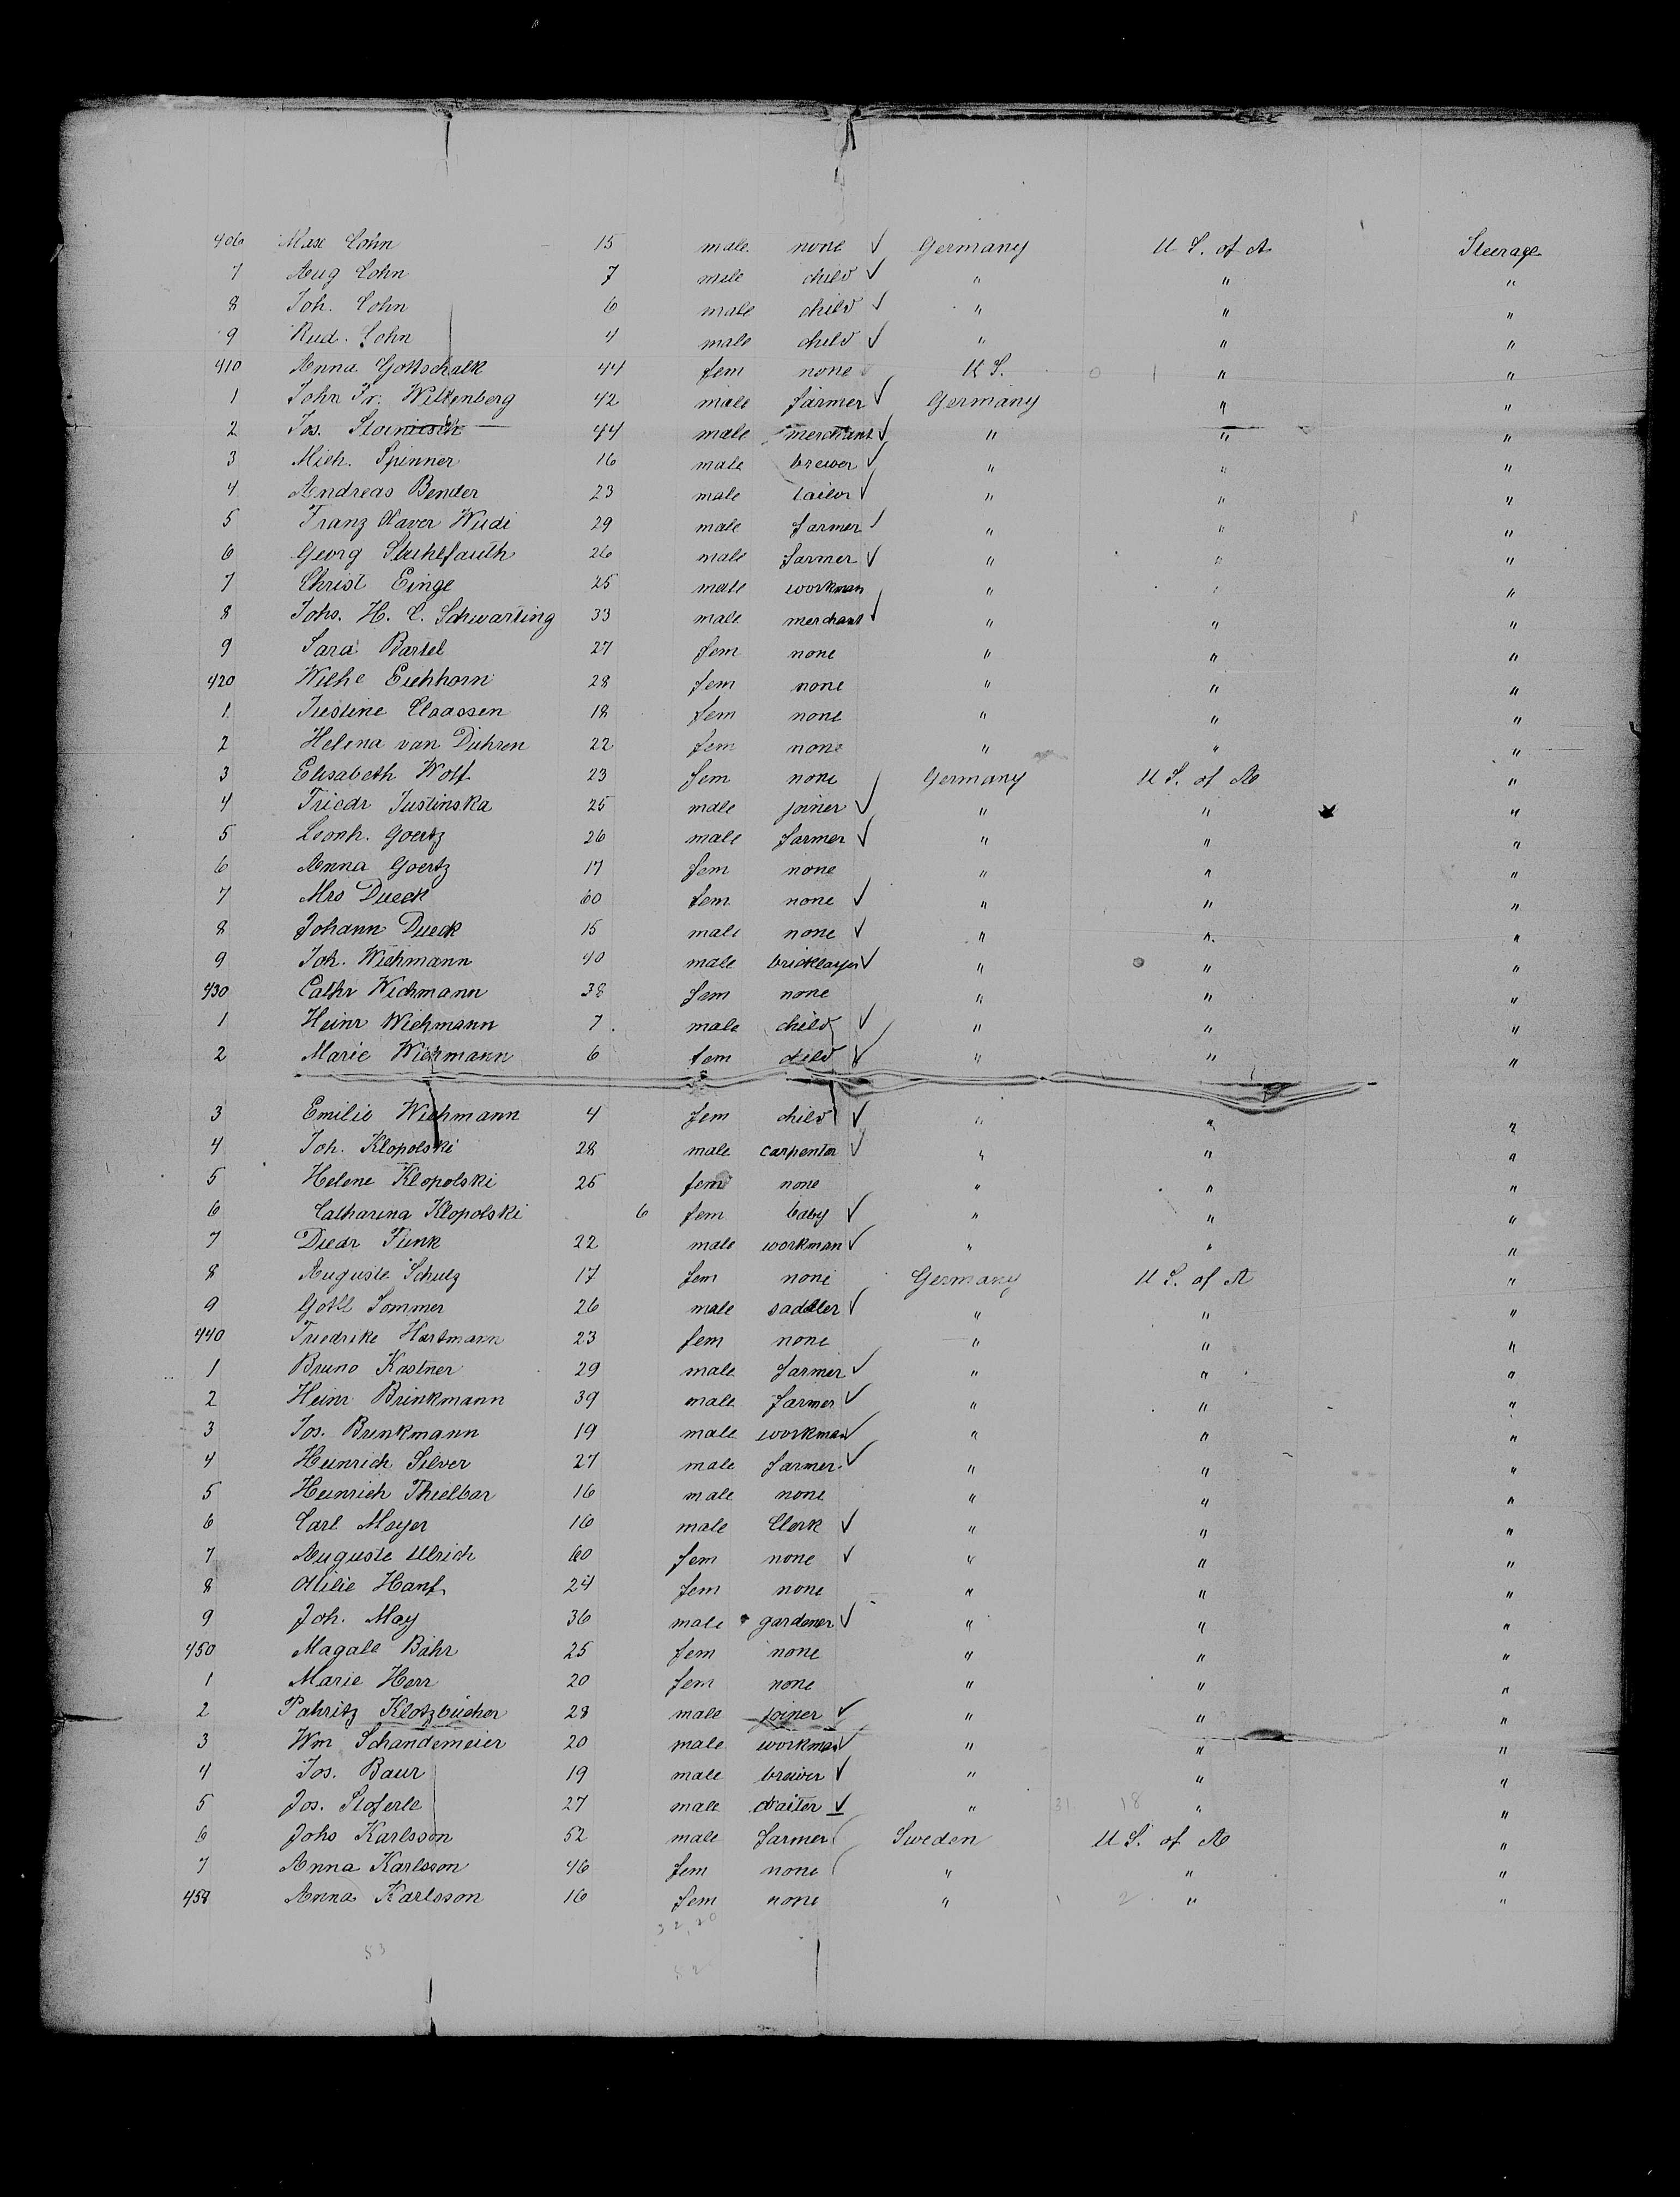 406 Max Cohn 15 male none ✓ Germany U S. of A Steerage
7 Aug Cohn 7 male child ✓ " " "
8 Joh. Cohn 6 male child ✓ " " "
9 Rud. Cohn 4 male child ✓ " " "
410 Anna Gottschalk 44 fem none U S. 0 1 " "
1 John Fr. Wittenberg 42 male farmer ✓ Germany " "
2 Jos. 44 male merchant ✓ " " "
3 Mich. Spinner 16 male brewer ✓ " " "
4 Andreas Bender 23 male tailor ✓ " " "
5 Franz Xaver Wudi 29 male farmer ✓ " " "
6 Georg Stuhlfauth 26 male farmer ✓ " " "
7 Christ Einge 25 male workman " " "
8 Johs. H. C. Schwarting 33 male merchant ✓ " " "
9 Sara Bartel 27 fem none " " "
420 Wilhe Eichhorn 28 fem none " " "
1 Justine Claassen 18 fem none " " "
2 Helena van Dühren 22 fem none " " "
3 Elisabeth Wolf 23 fem none Germany U S. of A "
4 Friedr Justinska 25 male joiner ✓ " " "
5 Leonh. Goertz 26 male farmer ✓ " " "
6 Anna Goertz 17 fem none " " "
7 Mrs Dueck 60 fem none ✓ " " "
8 Johann Dueck 15 male none ✓ " " "
9 Joh. Wichmann 40 male bricklayer ✓ " " "
430 Cathr Wichmann 38 fem none " " "
1 Heinr Wichmann 7. male child ✓ " " "
2 Marie Wichmann 6 fem child ✓ " " "
3 Emilie Wichmann 4 fem child ✓ " " "
4 Joh. Klopolski 28 male carpenter ✓ " " "
5 Helene Klopolski 25 fem none " " "
6 Catharina Klopolski 6 fem baby ✓ " " "
7 Diedr Funk 22 male workman ✓ " " "
8 Auguste Schulz 17 fem none Germany U S. of A "
9 Gottl Sommer 26 male saddler ✓ " " "
440 Friedrike Hartmann 23 fem none " " "
1 Bruno Kastner 29 male farmer ✓ " " "
2 Heinr Brinkmann 39 male farmer ✓ " " "
3 Jos. Brinkmann 19 male workman ✓ " " "
4 Heinrich Silver 27 male farmer ✓ " " "
5 Heinrich Thielbar 16 male none " " "
6 Carl Mayer 16 male Clerk ✓ " " "
7 Auguste Ulrich 60 fem none ✓ " " "
8 Otilie Hanf 24 fem none " " "
9 Joh. May 36 male gardener ✓ " " "
450 Magale Bähr 25 fem none " " "
1 Marie Herr 20 fem none " " "
2 Pahritz Klotzbücher 28 male joiner ✓ " " "
3 Wm Schandemeier 20 male workman ✓ " " "
4 Jos. Baur 19 male brewer ✓ " " "
5 Jos. Stoferle 27 male waiter ✓ " 31 18 " "
6 Johs Karlsson 52 male farmer Sweden U S. of A "
7 Anna Karlsson 46 fem none " " "
458 Anna Karlsson 16 fem none " 1 2 " "
53
52